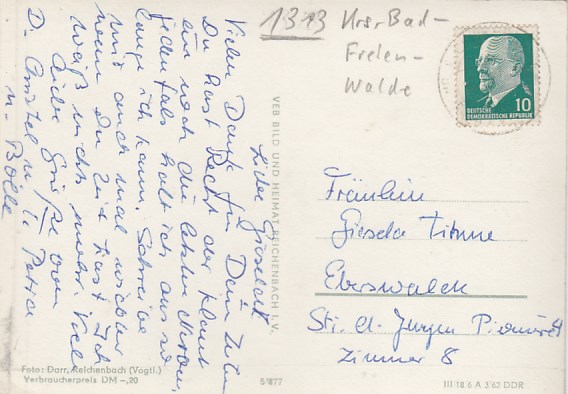 1313 Krsr Bad-
Freien-
Walde
DEUTSCHE
DEMOKRATISCHE REPUBLIK
10
Liebe Gisela!
Vielen Dank für Dein
Du hast Recht der klaut
ein noch die letzten Nerven,
jedenfalls halt ich aus so
lange ich kann. Schreibe
mir auch mal wieder
wenn Du Zeit hast. Ich
weiß nichts mehr. Viele
liebe Grüße von
D. u. Petra
u. Bolle
VEB BILD UND HEIMAT REICHENBACH I. V.
Fräulein
Gisela
Eberswalde
Str. d. Jungen Pioniere
Zimmer 8
Foto: Darr, Reichenbach (Vogtl.)
Verbraucherpreis DM -,20
5/877
III 18 6 A 3/62 DDR